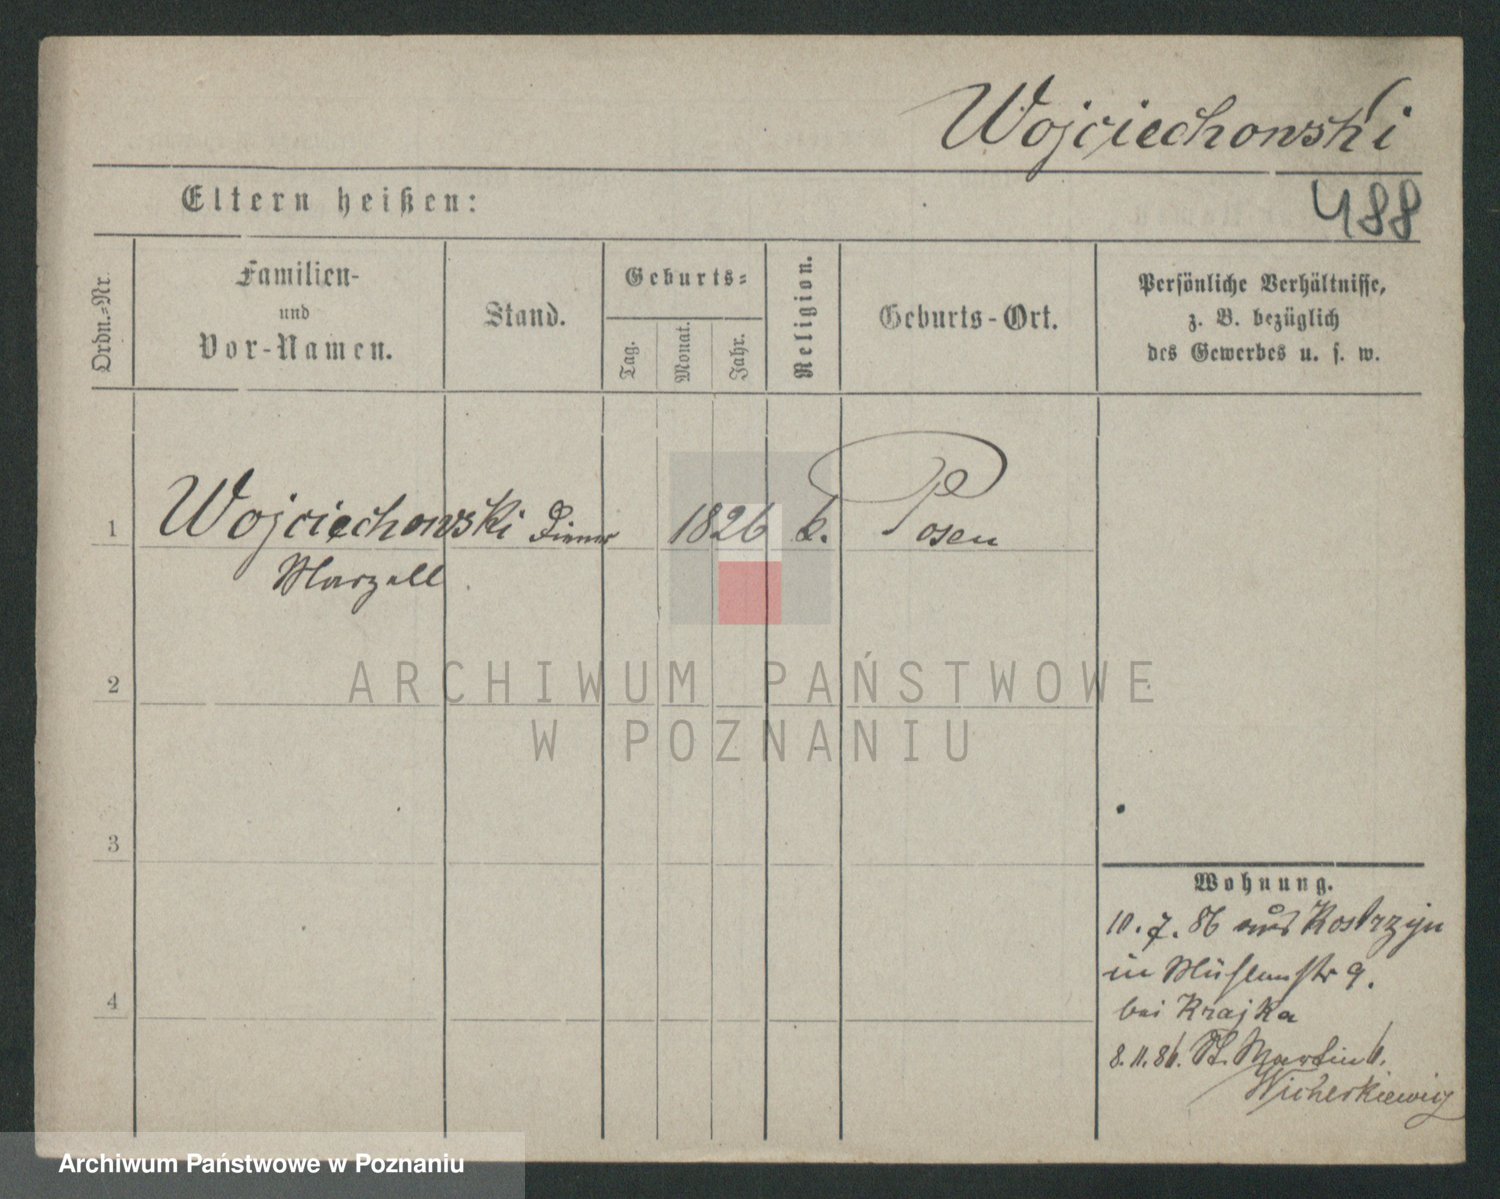 Wojciechowski
488
Eltern heißen:
Ordn.-Nr.
Familien-
und
Vor-Namen.
Stand.
Geburts-
Tag.
Monat.
Jahr.
Religion.
Geburts-Ort.
Persönliche Verhältnisse,
z. B. bezüglich
des Gewerbes u. s. w.
1 Wojciechowski Diener 1826 k. Posen
Marzell
2
3
4
Wohnung.
10.7.86 aus Kostrzyn
in Mühlenstr 9.
bei Krajka
8.11.86. St. Martin 6.
Wicherkiewicz
ARCHIWUM PAŃSTWOWE
W POZNANIU
Archiwum Państwowe w Poznaniu